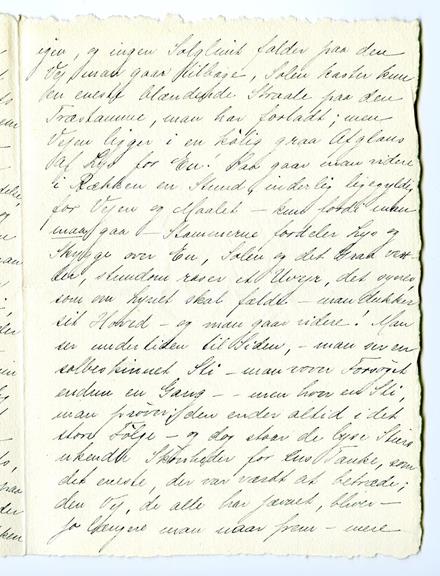 igen, og ingen Solglimt falder paa den
Vej man gaar tilbage, Solen kaster kun
en eneste blændende Straale paa den
Træstamme, man har forladt; men
Vejen ligger i en kølig graa Afglans
af Lys for En! Saa gaar man videre
i Rækken en Stund, inderlig ligegyldig
for Vejen og Maalet – kun fordi man
maa gaa – Stammerne fordeler Lys og
Skygge over En, Solen og det Graa
stundom raser et Uvejr, det synes,
som om hvert skal falde – man dukker
sit Hoved – og man gaar videre! Man
ser undertiden til Siden, – man ser en
solbeskinnet Sti – man vover Forsøget
endnu en Gang – – men hver en Sti,
man prøver, den ender altid i det
store Følge – og dog staar de lyse Stiers
ukendte Skønheder for Ens Tanke, som
det eneste, der var værdt at betræde;
den Vej, de alle har jævnet, bliver –
jo længere man naar frem – mere